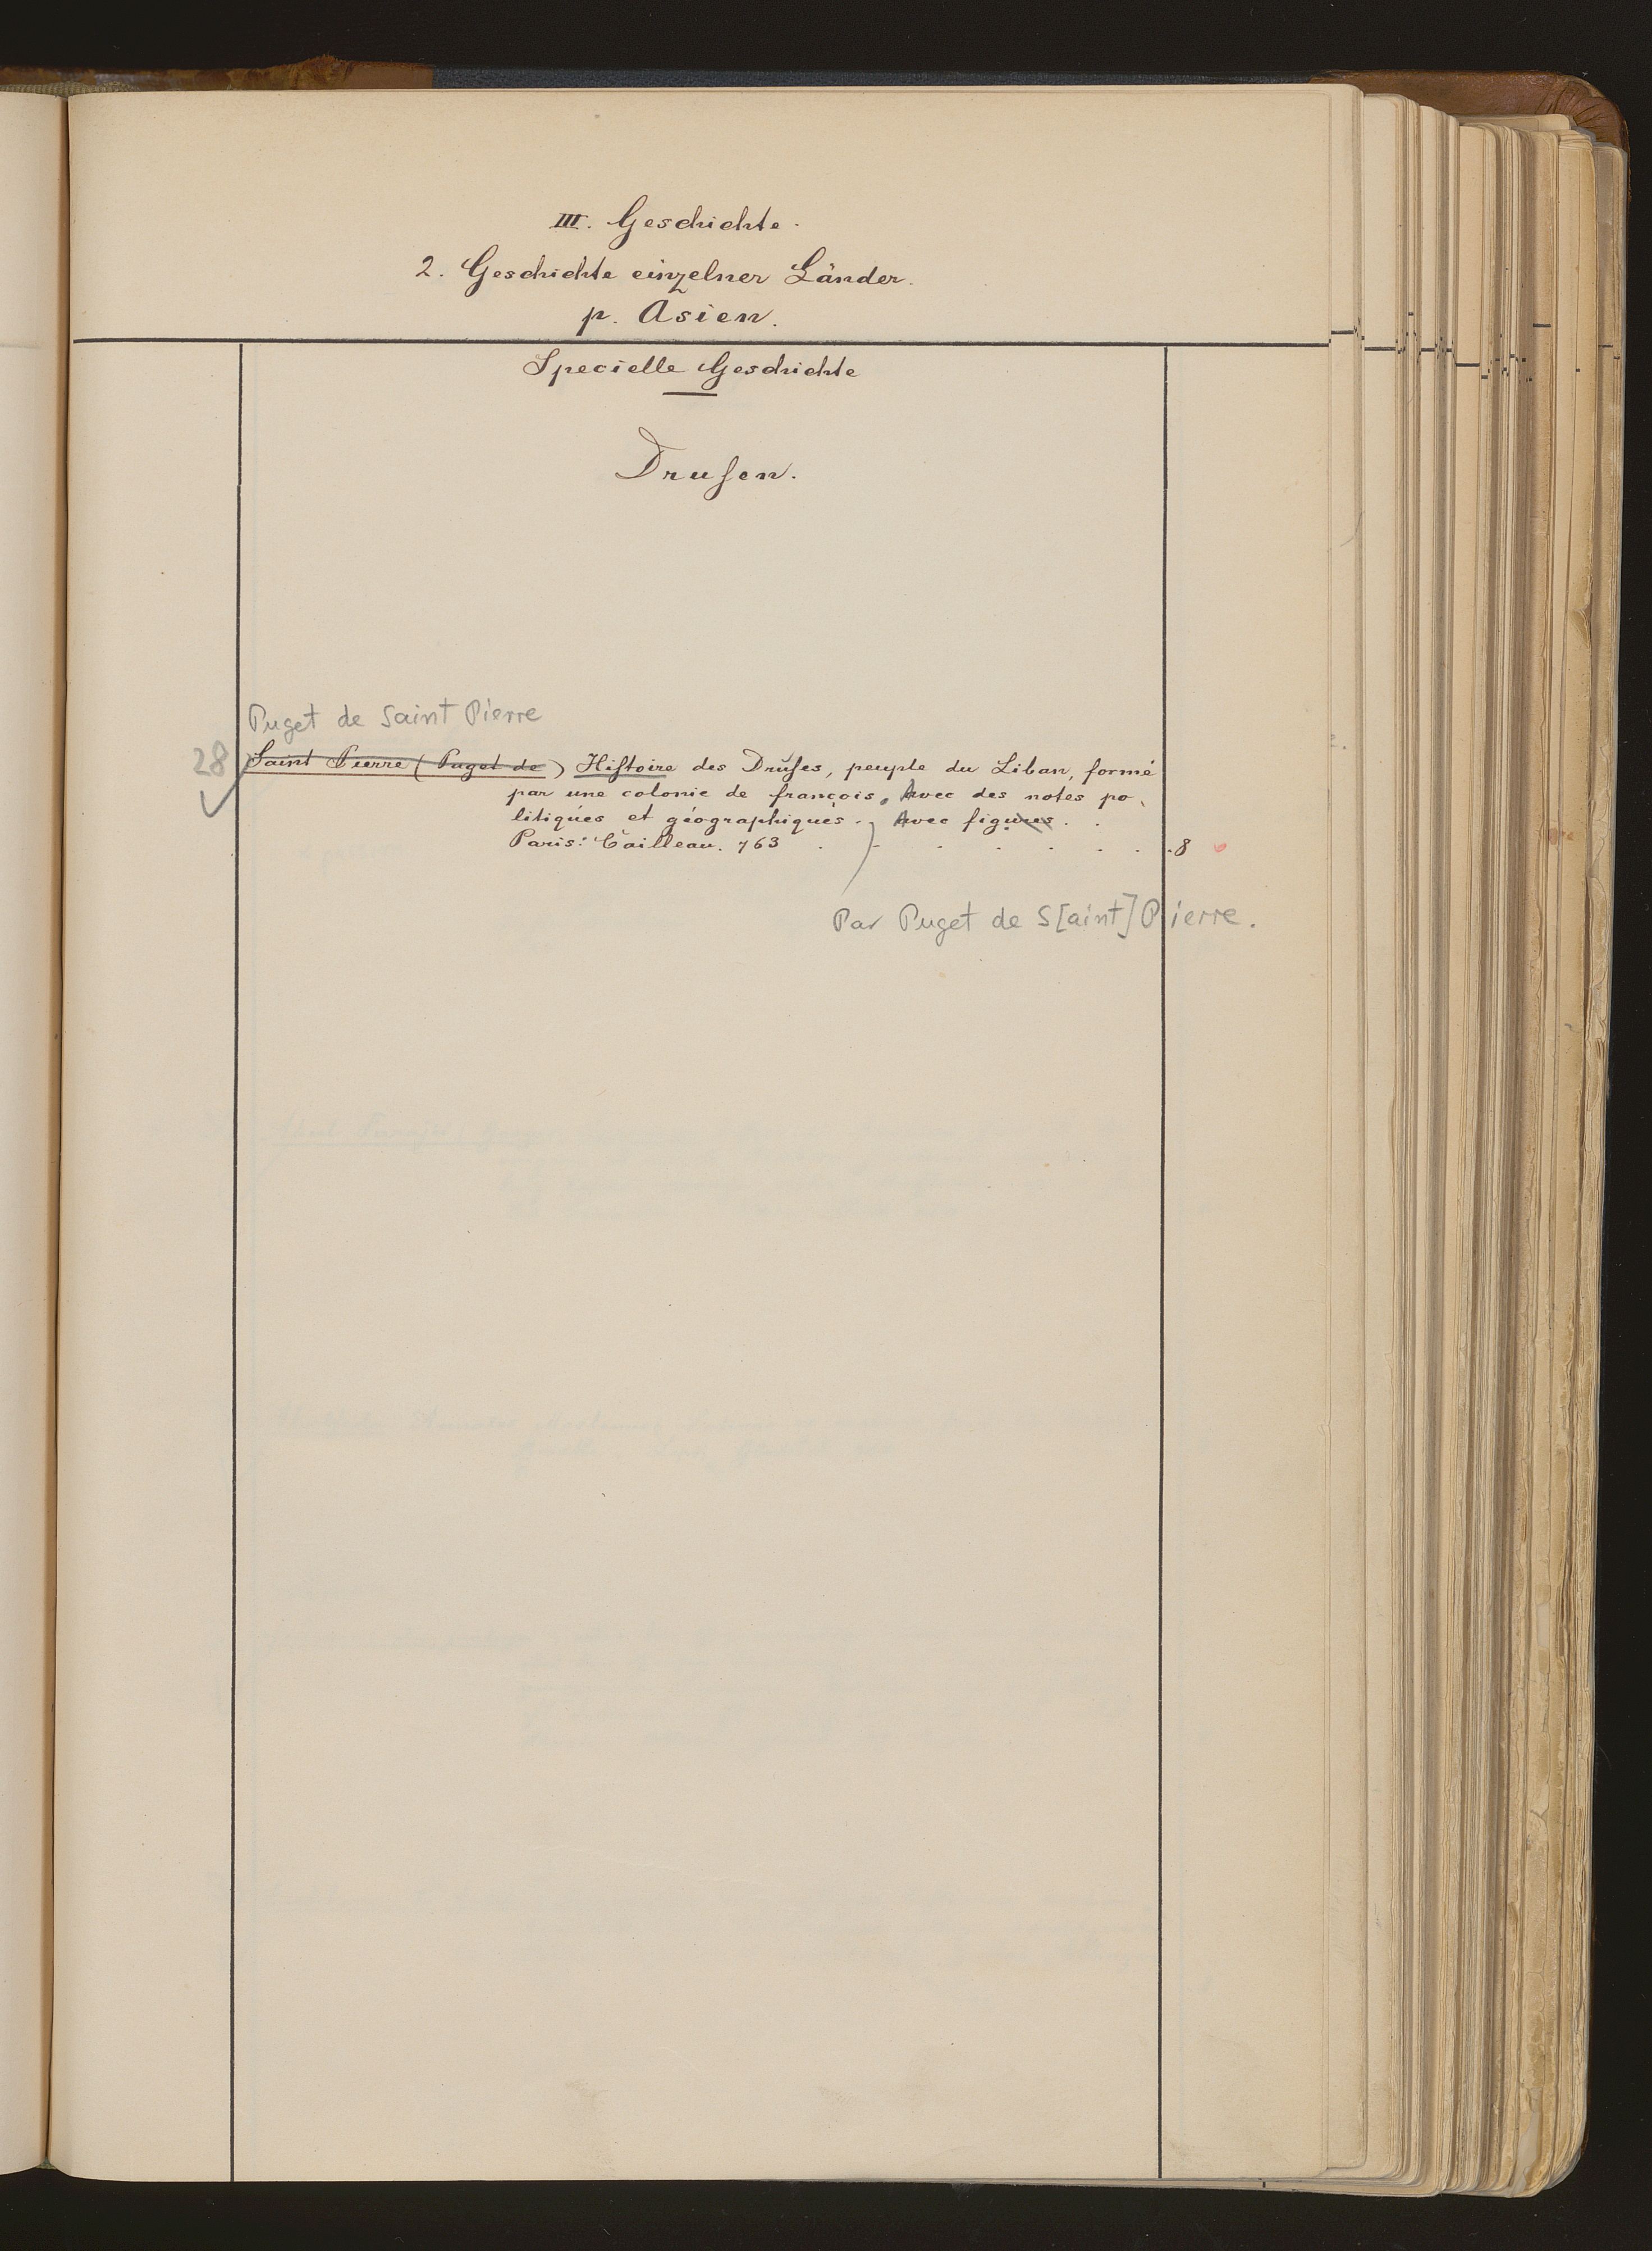 III. Geschichte.
2. Geschichte einzelner Länder.
p. Asien.
Specielle Geschichte
Drusen.
Puget de Saint Pierre
28 Saint Pierre (Puget de) Histoire des Druses, peuple du Liban, formé
par une colonie de françois. Avec des notes po-
litiques et géographiques. Avec figures.
Paris: Cailleau. 763 . . . . . . . 8
Par Puget de S[aint] Pierre.